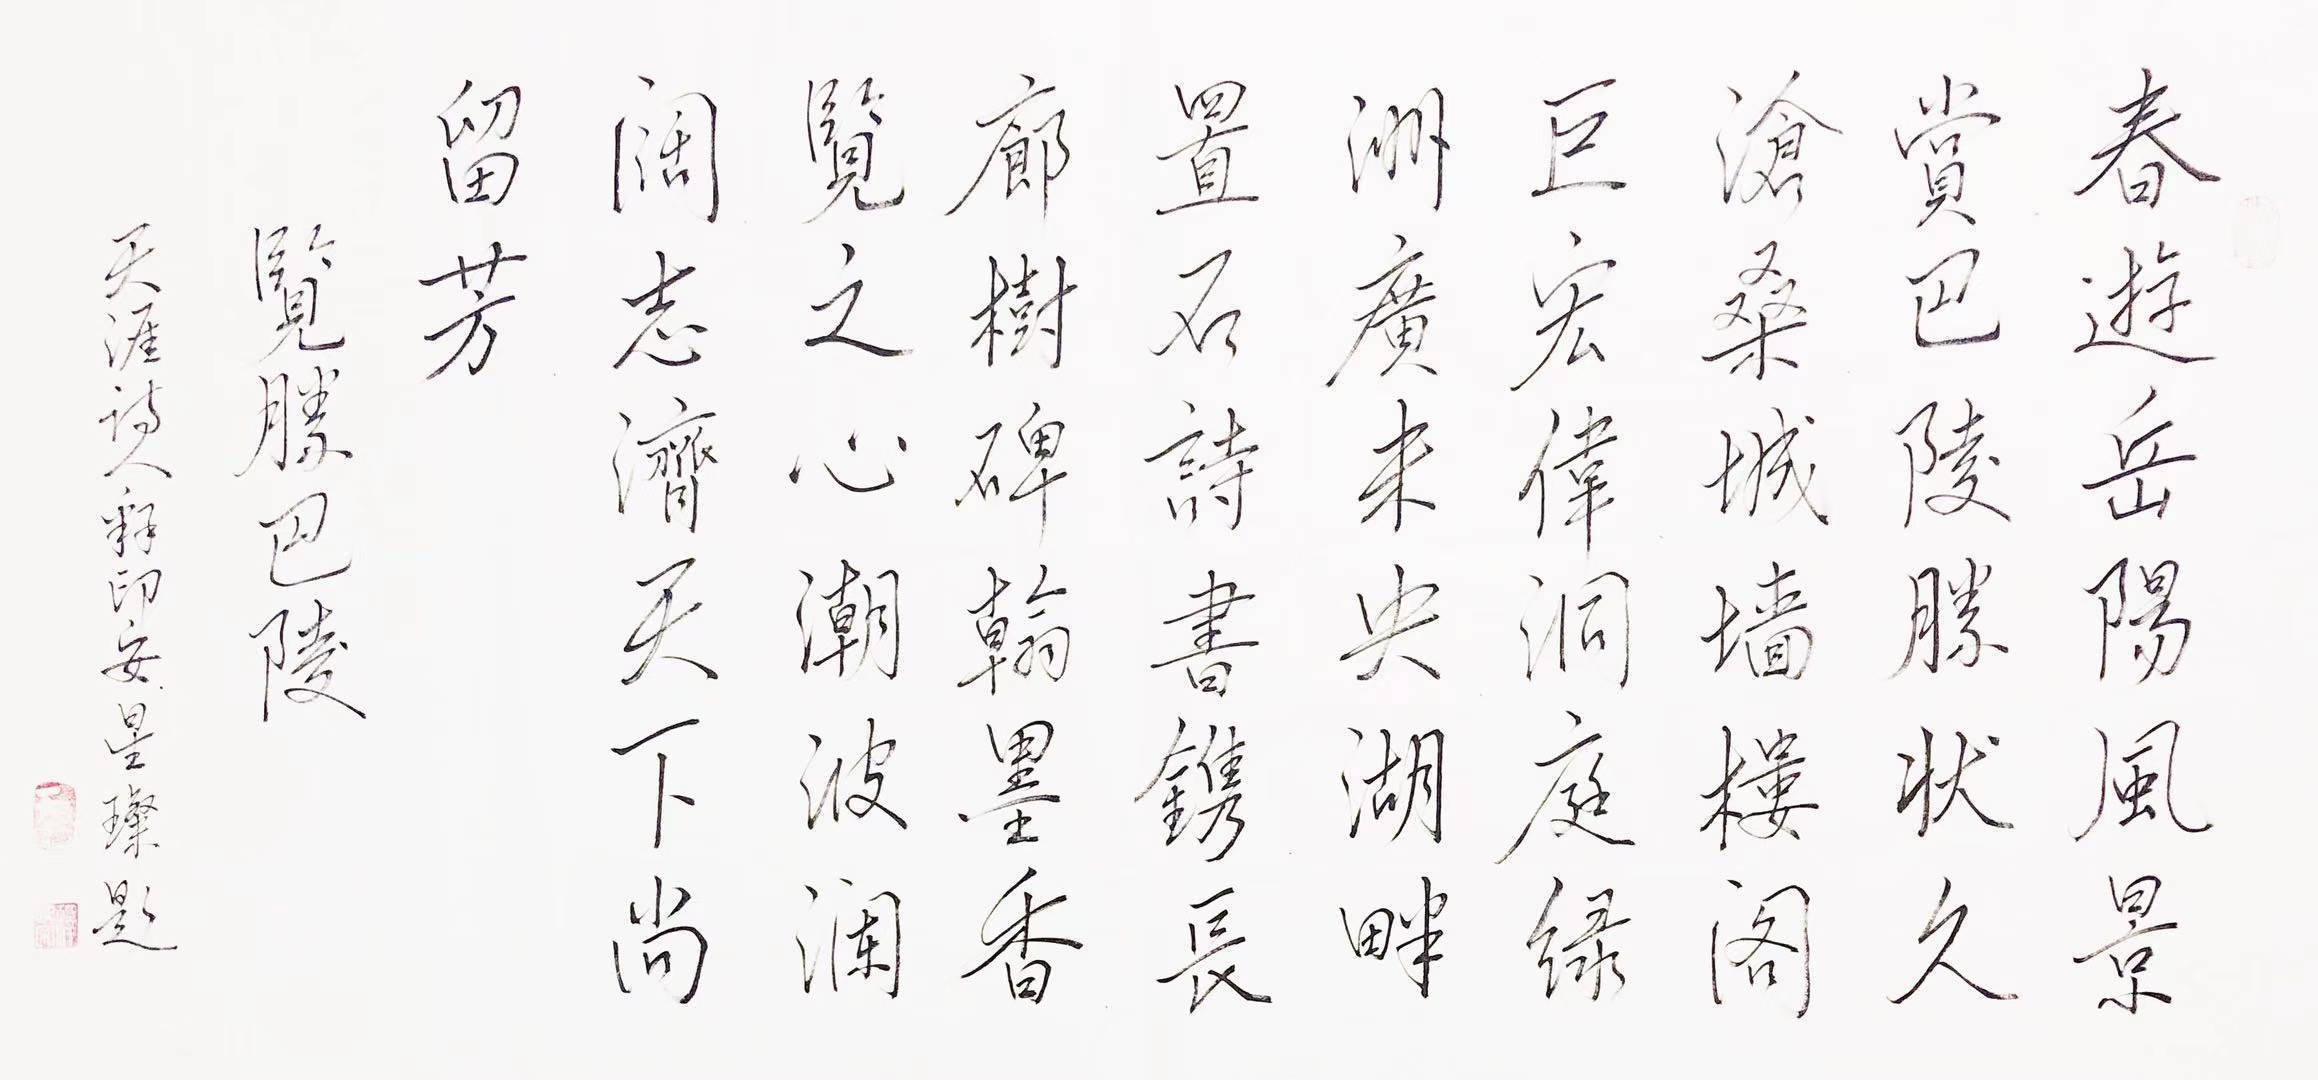 春遊岳陽風景
賞巴陵勝状久
滄桑城墙樓阁
巨宏偉洞庭绿
洲廣未央湖畔
置石詩書鐫長
廊樹碑翰墨香
覽之心潮波澜
阔志濟天下尚
留芳
覽勝巴陵
天涯诗人释印安星璨题